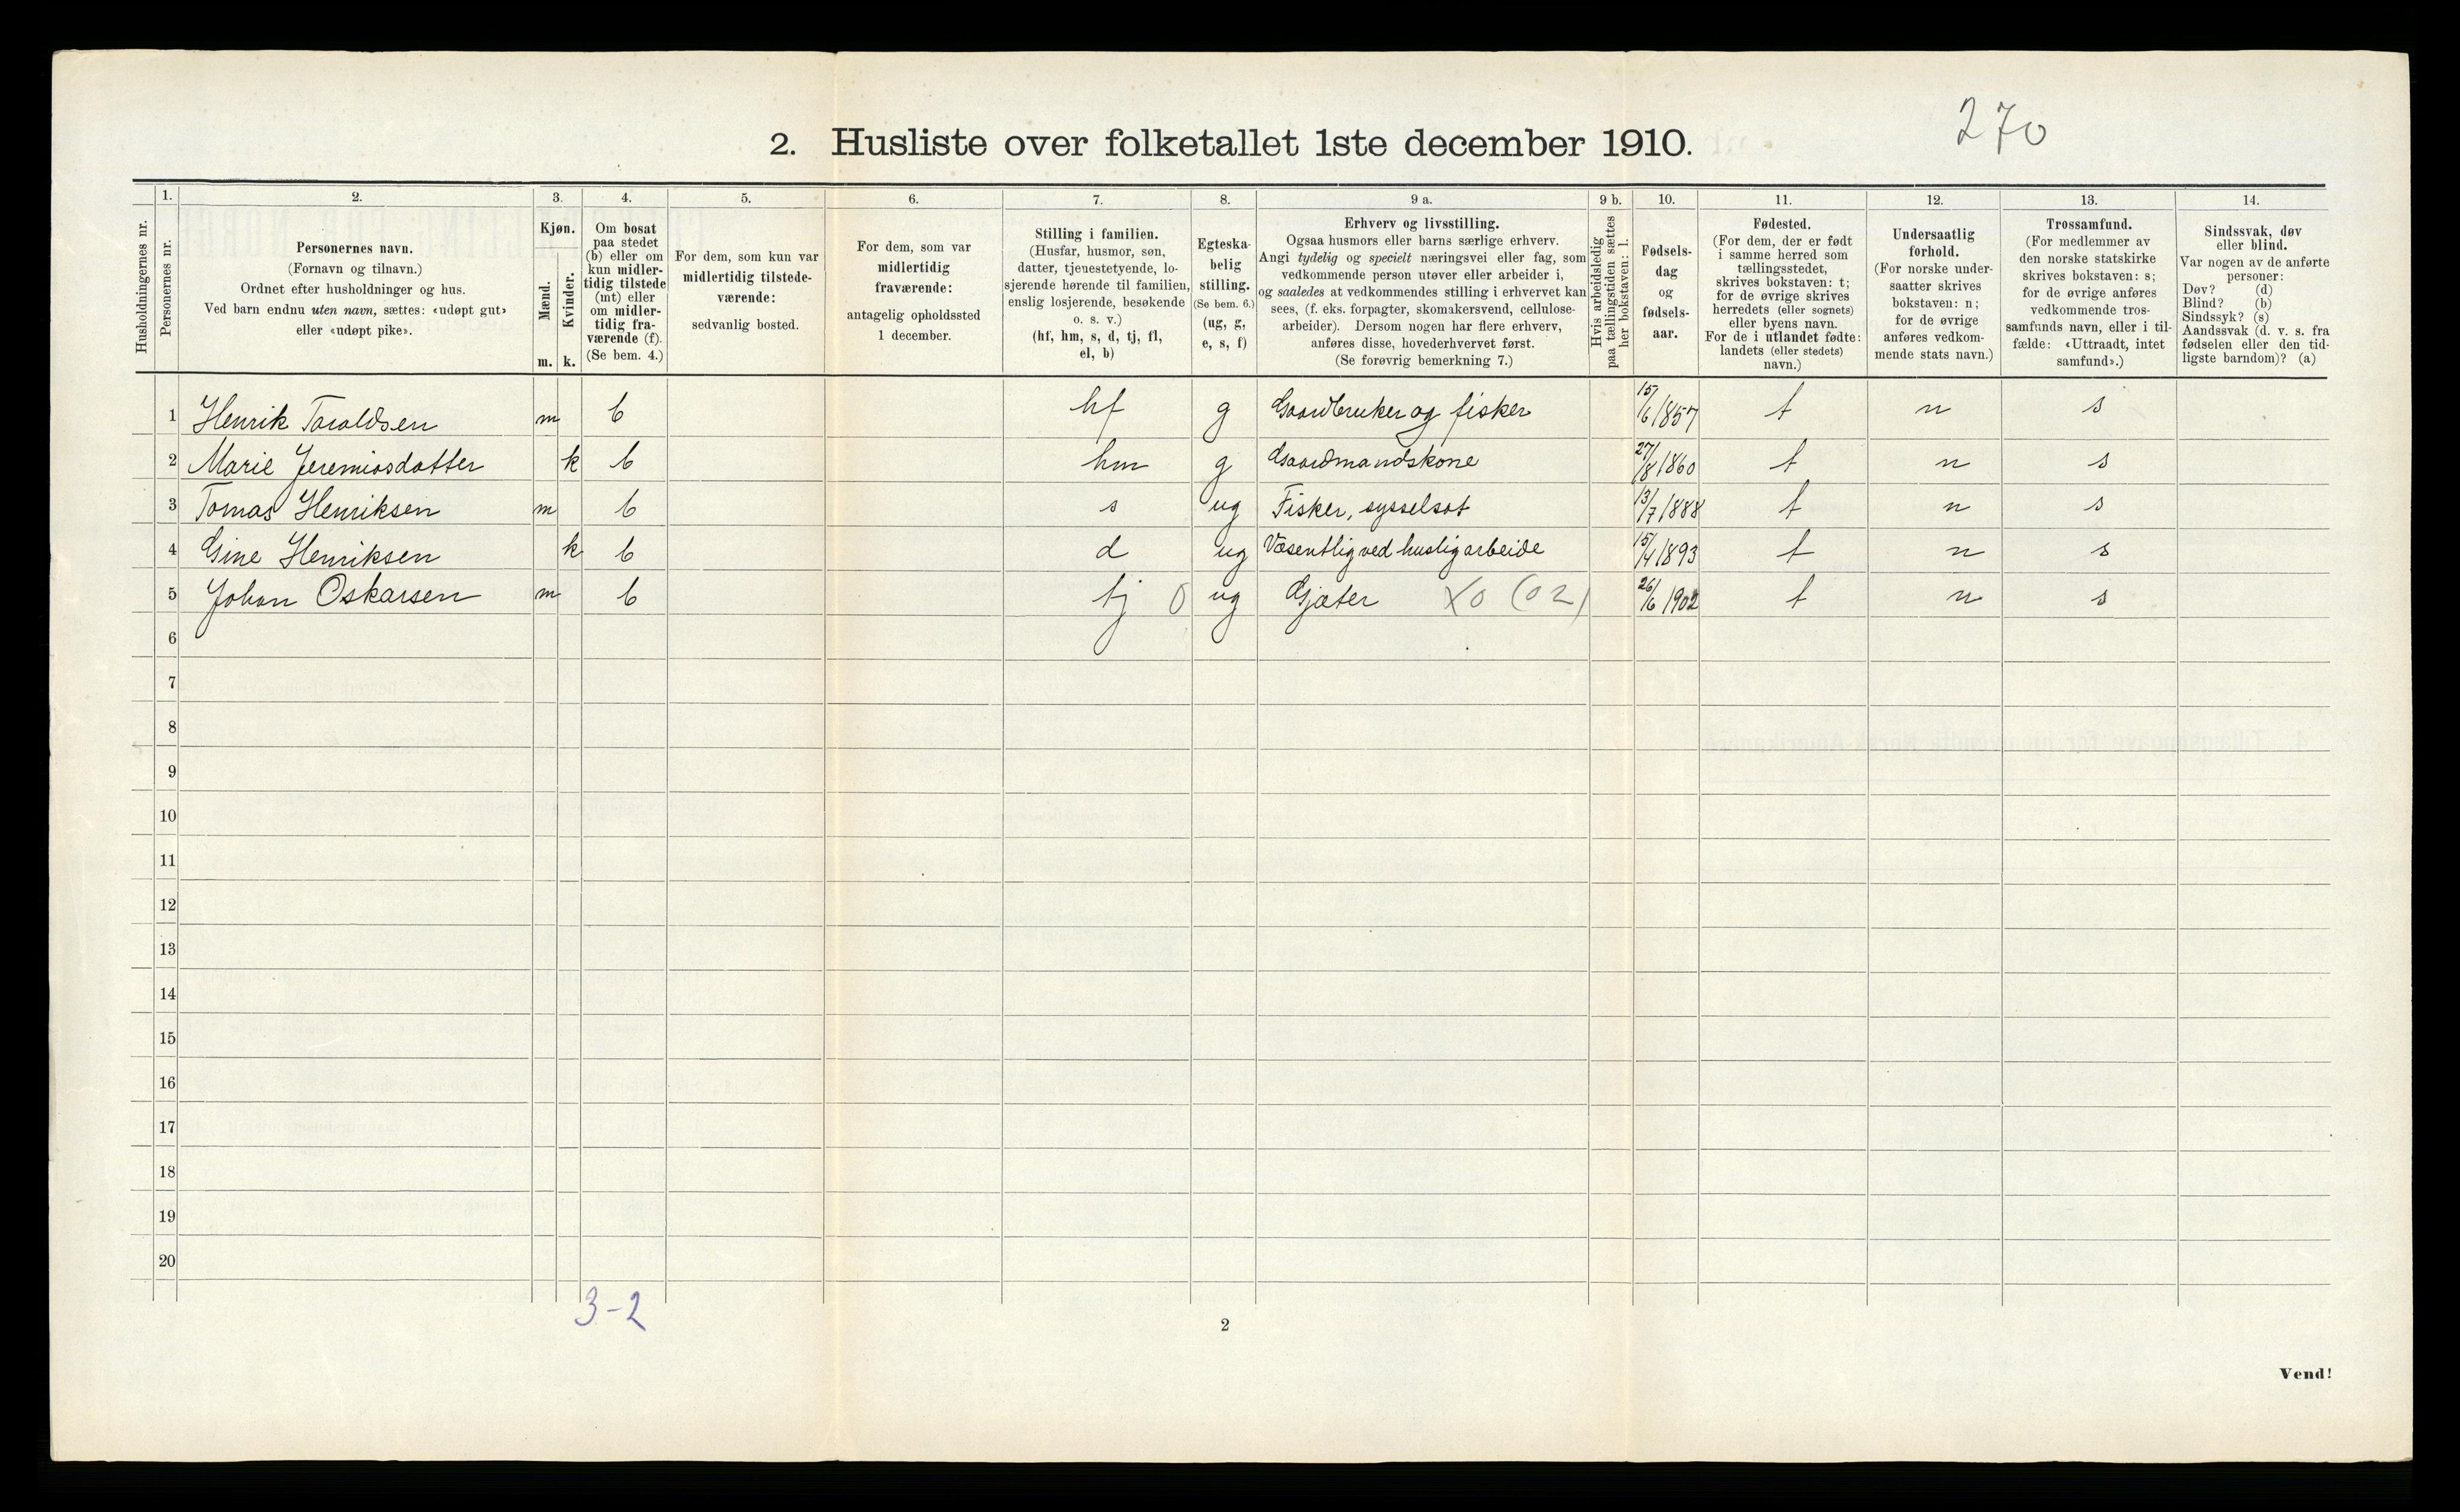 270
2. Husliste over folketallet 1ste december 1910.
Husholdningernes nr.
1.
Personernes nr.
2.
Personernes navn.
(Fornavn og tilnavn.)
Ordnet efter husholdninger og hus.
Ved barn endnu uten navn, sættes: «udøpt gut»
eller «udøpt pike».
3.
Kjøn.
Mænd.
Kvinder.
m. k.
4.
Om bosat
paa stedet
(b) eller om
kun midler-
tidig tilstede
(mt) eller
om midler-
tidig fra-
værende (f).
(Se bem. 4.)
5.
For dem, som kun var
midlertidig tilstede-
værende:
sedvanlig bosted.
6.
For dem, som var
midlertidig
fraværende:
antagelig opholdssted
1 december.
7.
Stilling i familien.
(Husfar, husmor, søn,
datter, tjenestetyende, lo-
sjerende hørende til familien,
enslig losjerende, besøkende
o. s. v.)
(hf, hm, s, d, tj, fl,
el, b)
8.
Egteska-
belig
stilling.
(Se bem. 6.)
(ug, g,
e, s, f)
9 a.
Erhverv og livsstilling.
Ogsaa husmors eller barns særlige erhverv.
Angi tydelig og specielt næringsvei eller fag, som
vedkommende person utøver eller arbeider i,
og saaledes at vedkommendes stilling i erhvervet kan
sees, (f. eks. forpagter, skomakersvend, cellulose-
arbeider). Dersom nogen har flere erhverv,
anføres disse, hovederhvervet først.
(Se forøvrig bemerkning 7.)
9 b.
Hvis arbeidsledig
paa tællingstiden sættes
her bokstaven: l.
10.
Fødsels-
dag
og
fødsels-
aar.
11.
Fødested.
(For dem, der er født
i samme herred som
tællingsstedet,
skrives bokstaven: t;
for de øvrige skrives
herredets (eller sognets)
eller byens navn.
For de i utlandet fødte:
landets (eller stedets)
navn.)
12.
Undersaatlig
forhold.
(For norske under-
saatter skrives
bokstaven: n;
for de øvrige
anføres vedkom-
mende stats navn.)
13.
Trossamfund.
(For medlemmer av
den norske statskirke
skrives bokstaven: s;
for de øvrige anføres
vedkommende tros-
samfunds navn, eller i til-
fælde: «Uttraadt, intet
samfund».)
14.
Sindssvak, døv
eller blind.
Var nogen av de anførte
personer:
Døv? (d)
Blind? (b)
Sindssyk? (s)
Aandssvak (d. v. s. fra
fødselen eller den tid-
ligste barndom)? (a)
1 Henrik Toraldsen m b hf g Gaardbruker og fisker 15/6 1857 t n s
2 Marie Jeremiasdatter k b hm g Gaardmandskone 27/8 1860 t n s
3 Tomas Henriksen m b s ug Fisker, sysselsat 13/7 1888 t n s
4 Gine Henriksen k b d ug Væsentlig ved huslig arbeide 15/4 1893 t n s
5 Johan Oskarsen m b tj 0 ug Gjæter X0 (02) 26/6 1902 t n s
6
7
8
9
10
11
12
13
14
15
16
17
18
19
20
3-2
2
Vend!